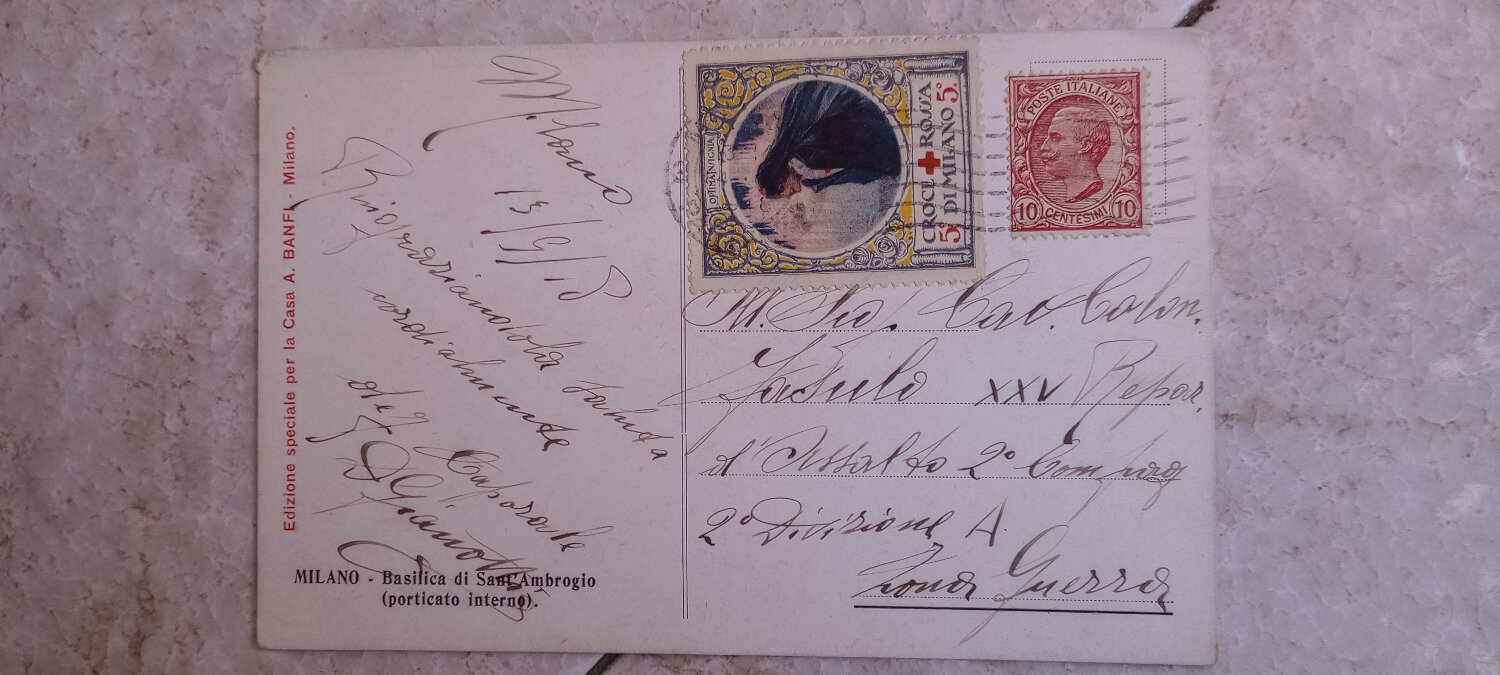 Edizione speciale per la Casa A. BANFI - Milano.
Milano
13/9/18
Ringraziandola saluta
cordialmente
Caporale
MILANO - Basilica di Sant'Ambrogio
(porticato interno).
OPTIMA INSIGNIA
CROCE ROSSA
5c DI MILANO 5c
POSTE ITALIANE
10 CENTESIMI 10
Cav. Colon.
Fasulo XXV Repar.
d'Assalto 2° Compag
2° Divizione A.
Zona Guerra